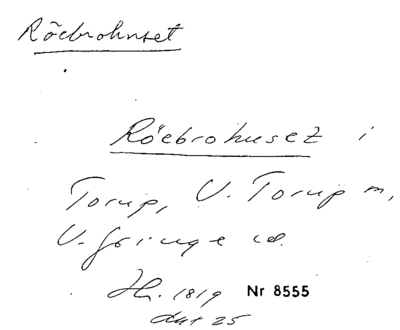 Röebrohuset
Röebrohuset i
Torup, V. Torup m,
V. Gринge sd.
Hr. 1819 Nr 8555
dat 25